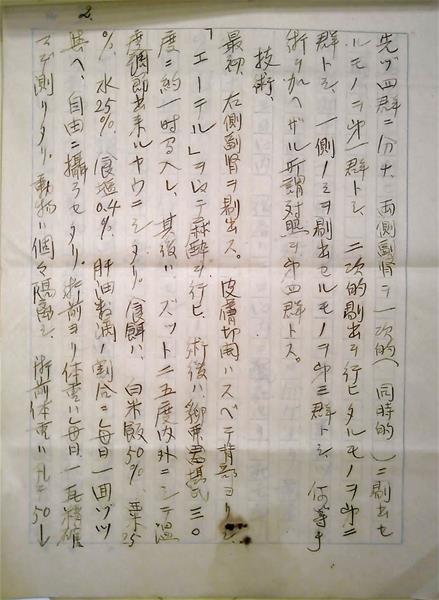 2.
先ヅ四群ニ分ケ、両側副腎ヲ一次的(同時的)ニ剔出セ
ルモノヲ第一群トシ、二次的剔出ヲ行ヒタルモノヲ第二
群トシ、一側ノミヲ剔出セルモノヲ第三群トシ、何等手
術ヲ加ヘザル所謂対照ヲ第四群トス。
技術、
最初、右側副腎ヲ剔出ス。皮膚切開ハスベテ背部ヨリシ、
「エーテル」ヲ以テ麻酔ヲ行ヒ、術後ハ 三〇
度ニ約一時 入レ、其後ハ、ズット二五度内外ニシテ温
度調節出来ルヤウニシタリ。食餌ハ、白米飯50%、粟25
%、水25%、食塩0.4%、肝油 滴ノ割合ニ毎日一回ヅツ
与ヘ、自由ニ攝ラセタリ。術前ヨリ体重ハ毎日、一瓦精確
マデ測リタリ。動物ハ個々隔離シ、術前体重ハ凡ソ50—